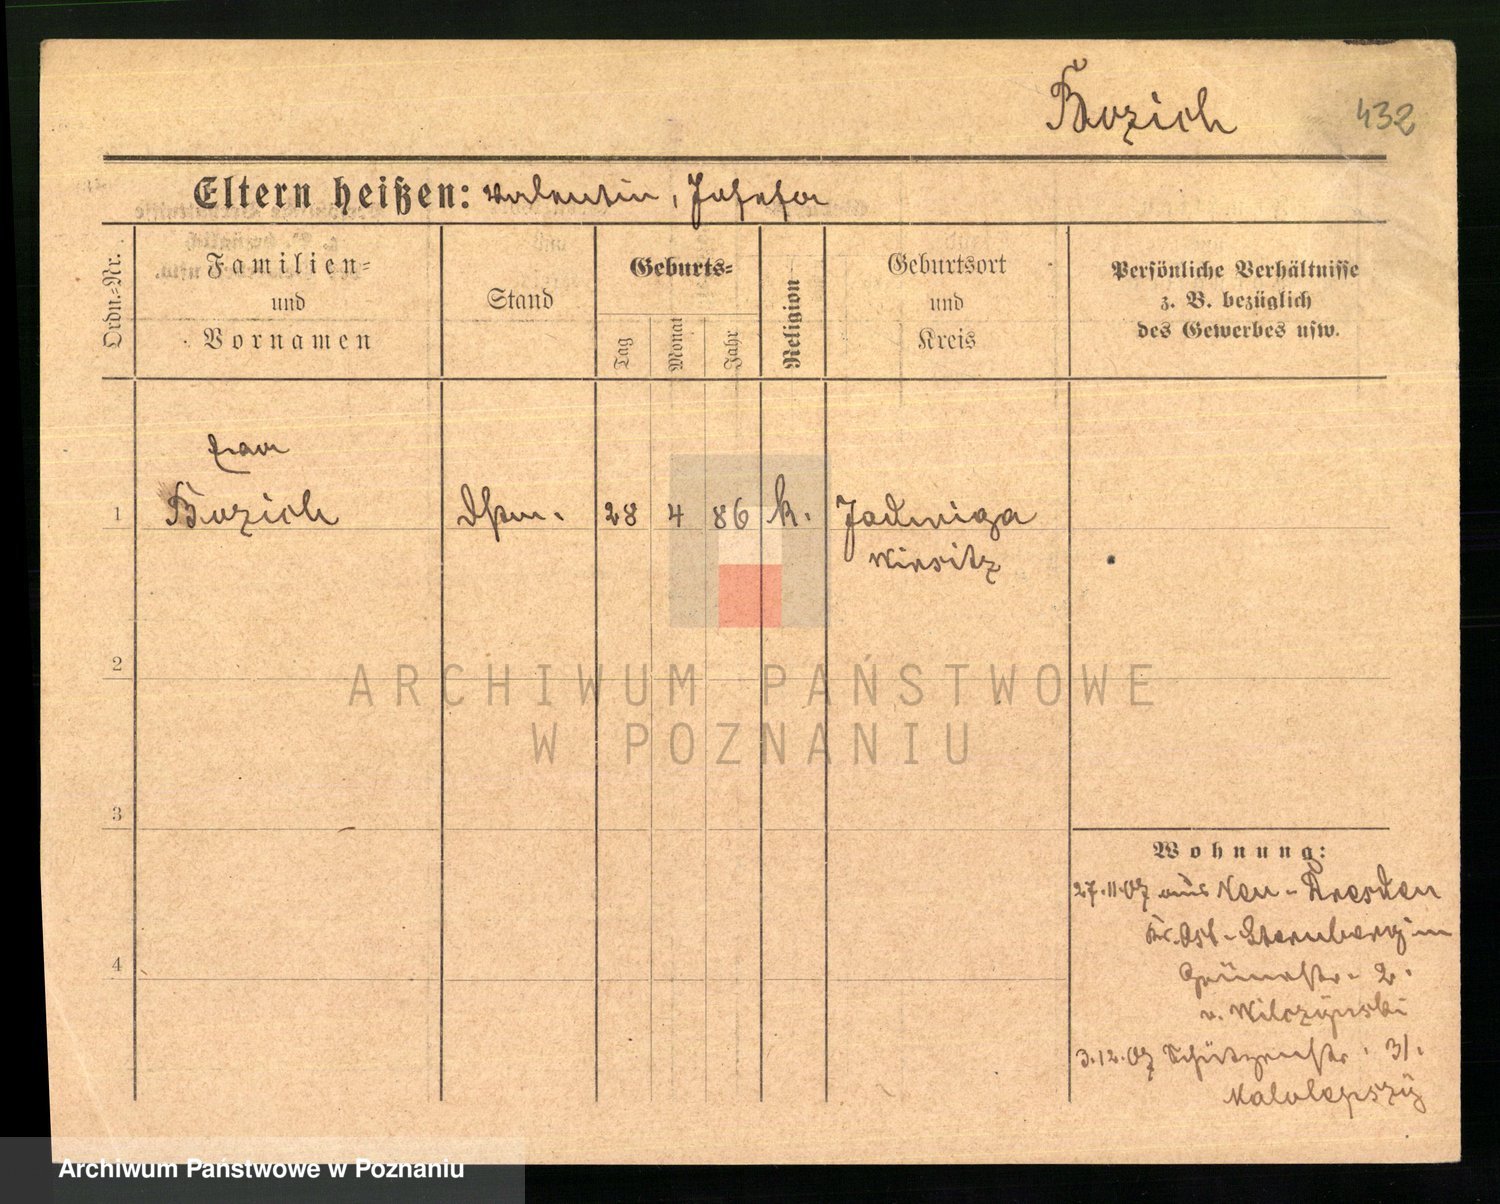 Bozich
432
Eltern heißen: Valentin, Josefa
Ordn.-Nr.
Familien- und Vornamen
Stand
Geburts-
Tag
Monat
Jahr
Religion
Geburtsort und Kreis
Persönliche Verhältnisse
z. B. bezüglich
des Gewerbes usw.
1
Bozich
28 4 86 k.
Jadwiga
Wirsitz
2
3
4
Wohnung:
27.11.07 aus Neu-Dresden
Kr. Ost-Sternberg in
Grünestr. 2.
v. Wilczynski
3.12.07 Schützenstr. 31.
Malolepszy
ARCHIWUM PAŃSTWOWE
W POZNANIU
Archiwum Państwowe w Poznaniu